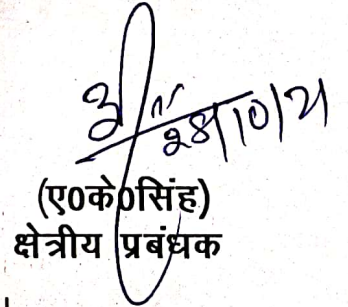 28/10/21
(ए0के0सिंह)
क्षेत्रीय प्रबंधक